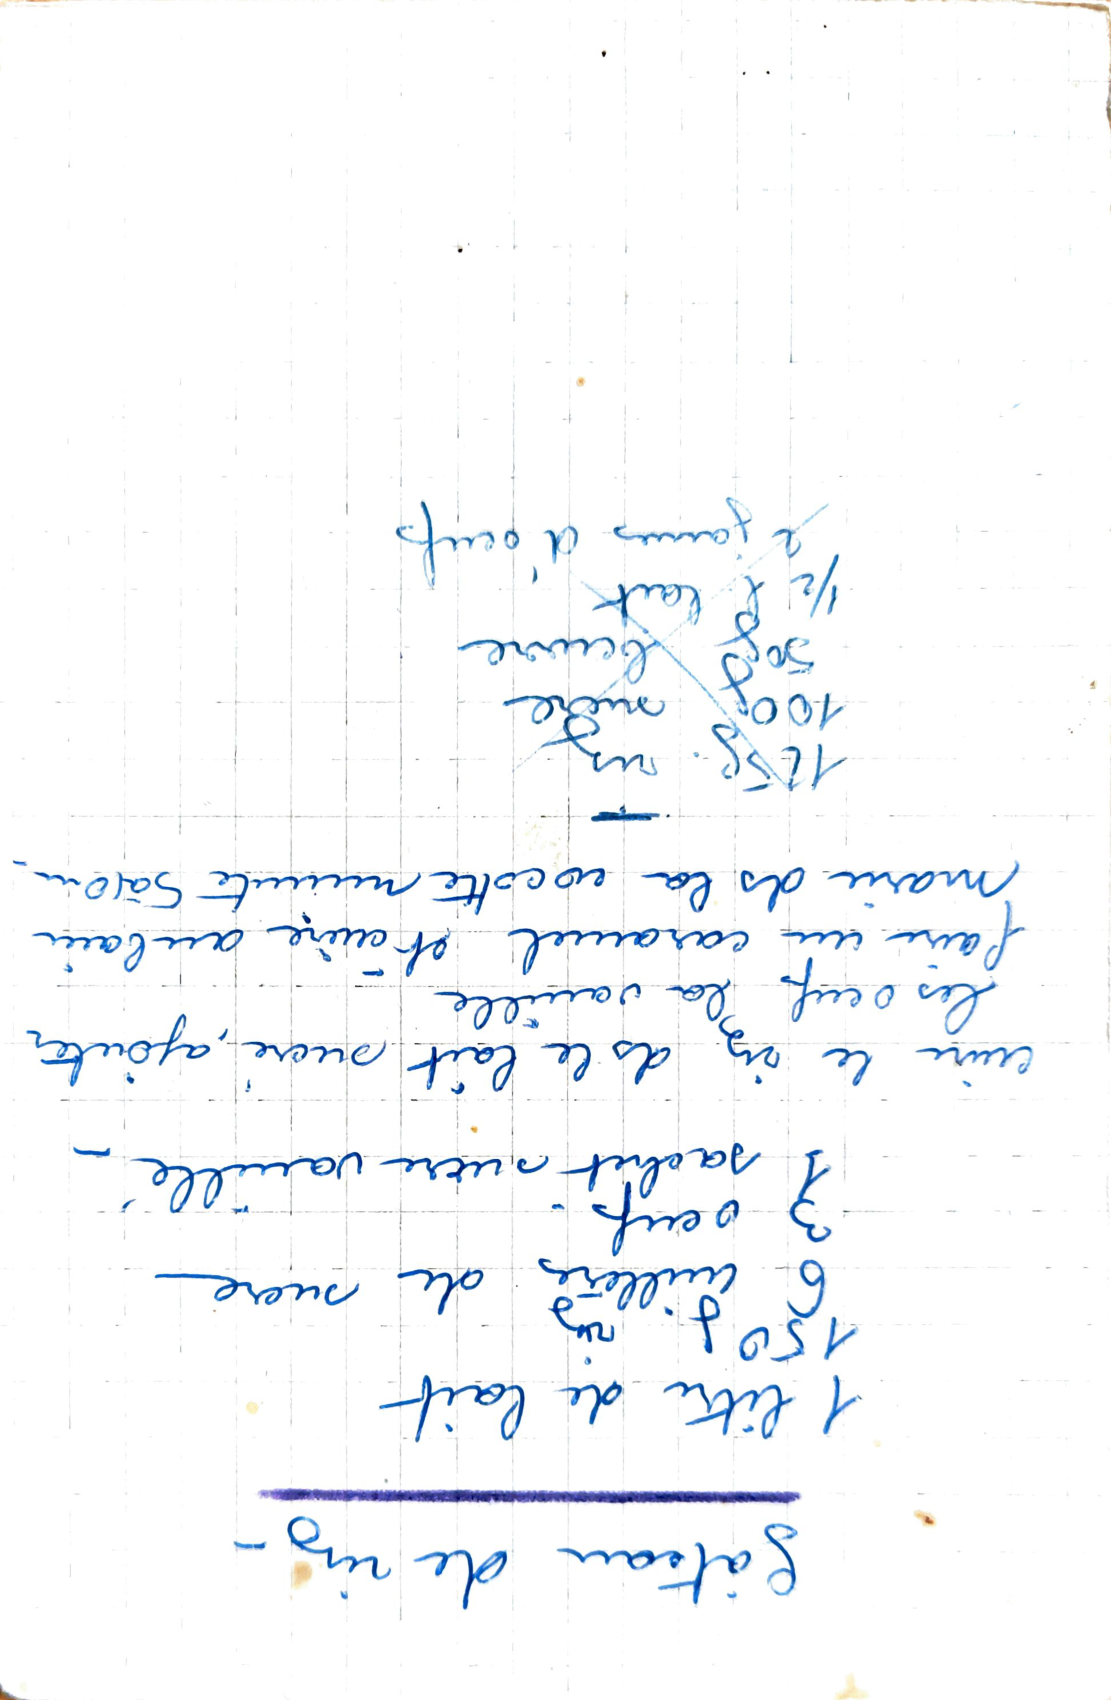 Gâteau de riz -
1 litre de lait
150 g riz
6 cuillères de sucre
3 oeufs.
1 sachet sucre vanillé -
cuire le riz ds le lait sucré, ajouter
les oeufs la vanille
faire un caramel et cuire au bain
marie ds la cocotte minute
125g. riz
100g sucre
50g beurre
1/2 l lait
2 jaunes d'oeufs